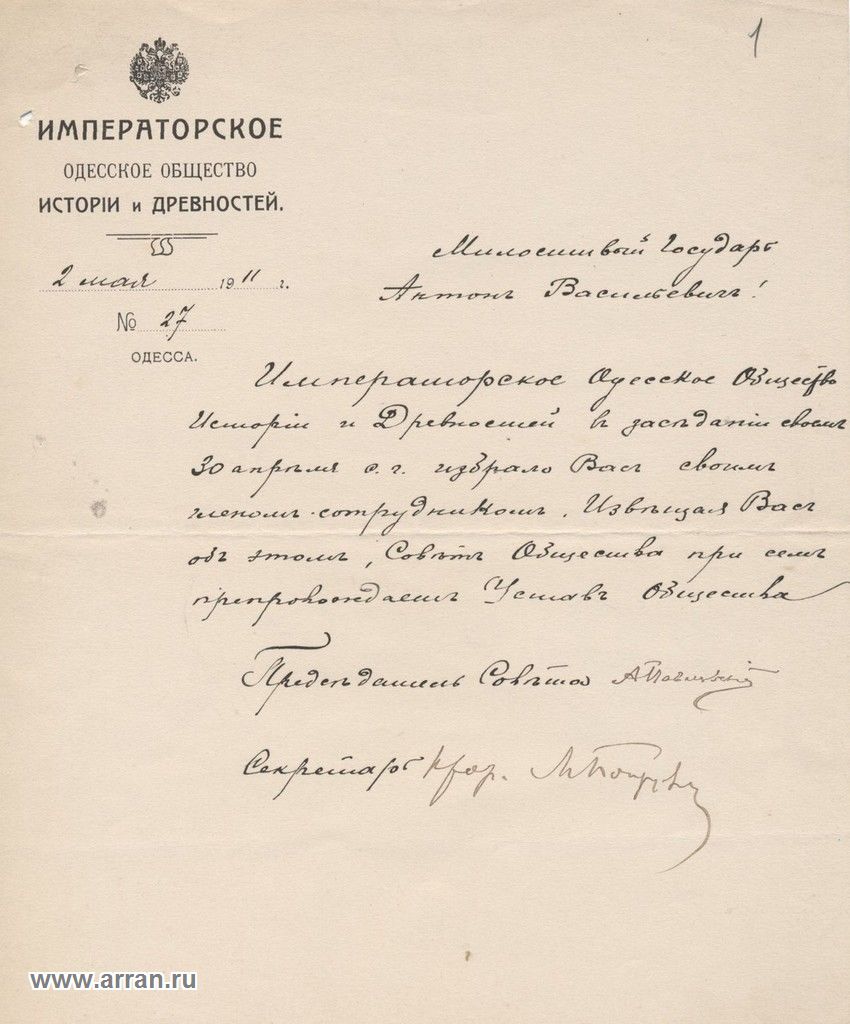 1
ИМПЕРАТОРСКОЕ
ОДЕССКОЕ ОБЩЕСТВО
ИСТОРІИ и ДРЕВНОСТЕЙ.
2 мая 1911 г.
№ 27
ОДЕССА.
Милостивый Государь
Антонъ Васильевичъ!
Императорское Одесское Общество
Исторіи и Древностей въ засѣданіи своемъ
30 апрѣля с. г. избрало Васъ своимъ
членомъ-сотрудникомъ. Извѣщая Васъ
объ этомъ, Совѣтъ Общества при семъ
препровождаетъ Уставъ Общества
Предсѣдатель Совѣта
Секретарь проф.
www.arran.ru